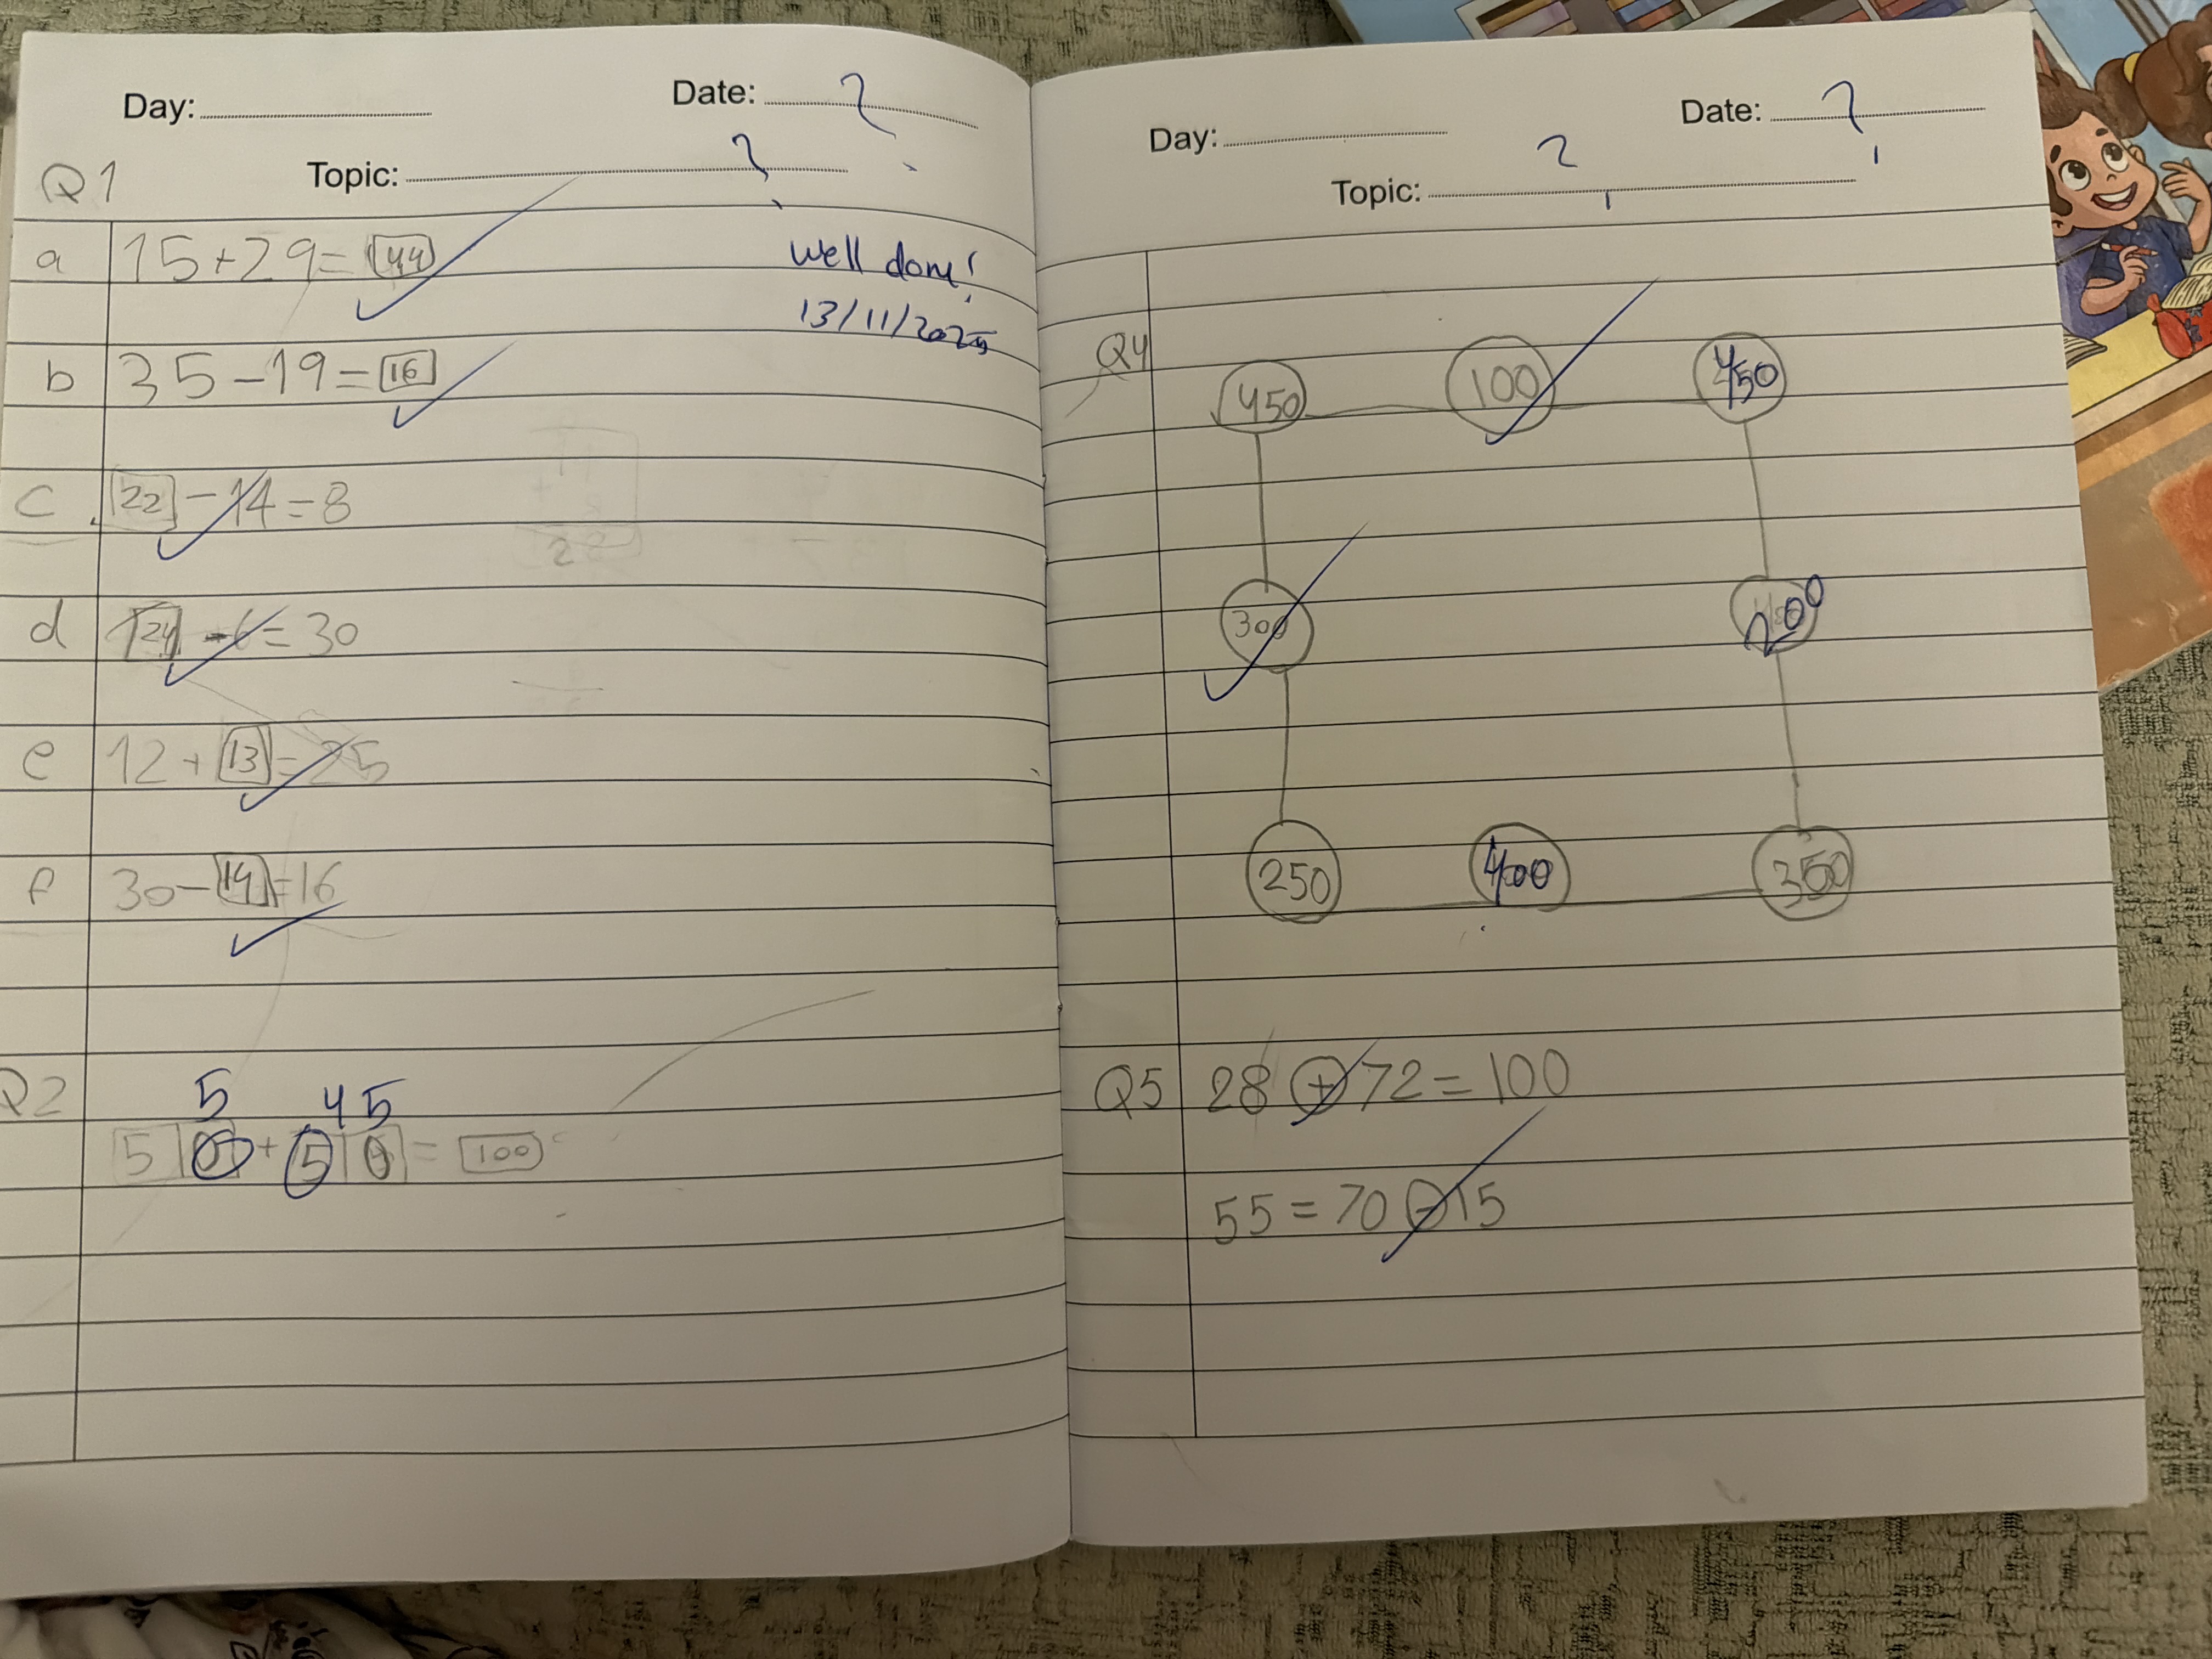 Day: Date: ?
Q1 Topic: ?
a 15+29= 44
well done!
13/11/2025
b 35-19= 16
c 22 -14=8
d 24 -6=30
e 12+ 13 =25
f 30- 14 =16
Q2 5 45
5 0 + 5 0 = 100
Day: Date: ?
Topic: ?
Q4 450 100 450
300 200
250 400 350
Q5 28 + 72=100
55=70 - 15